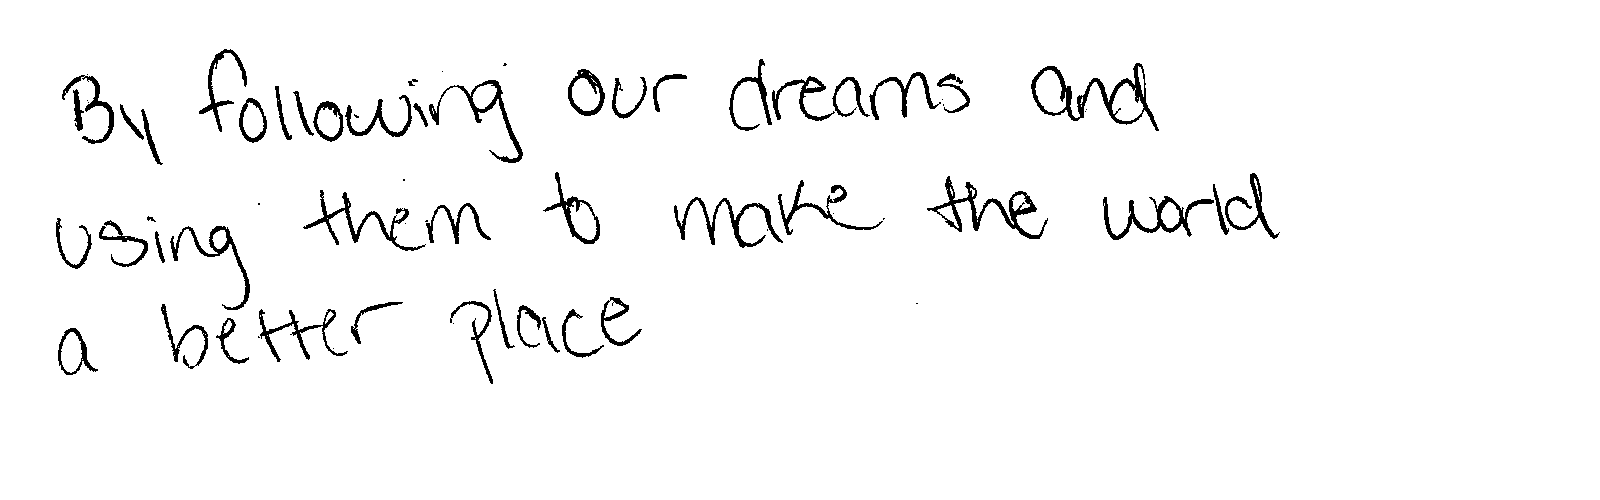 By following our dreams and
using them to make the world
a better place